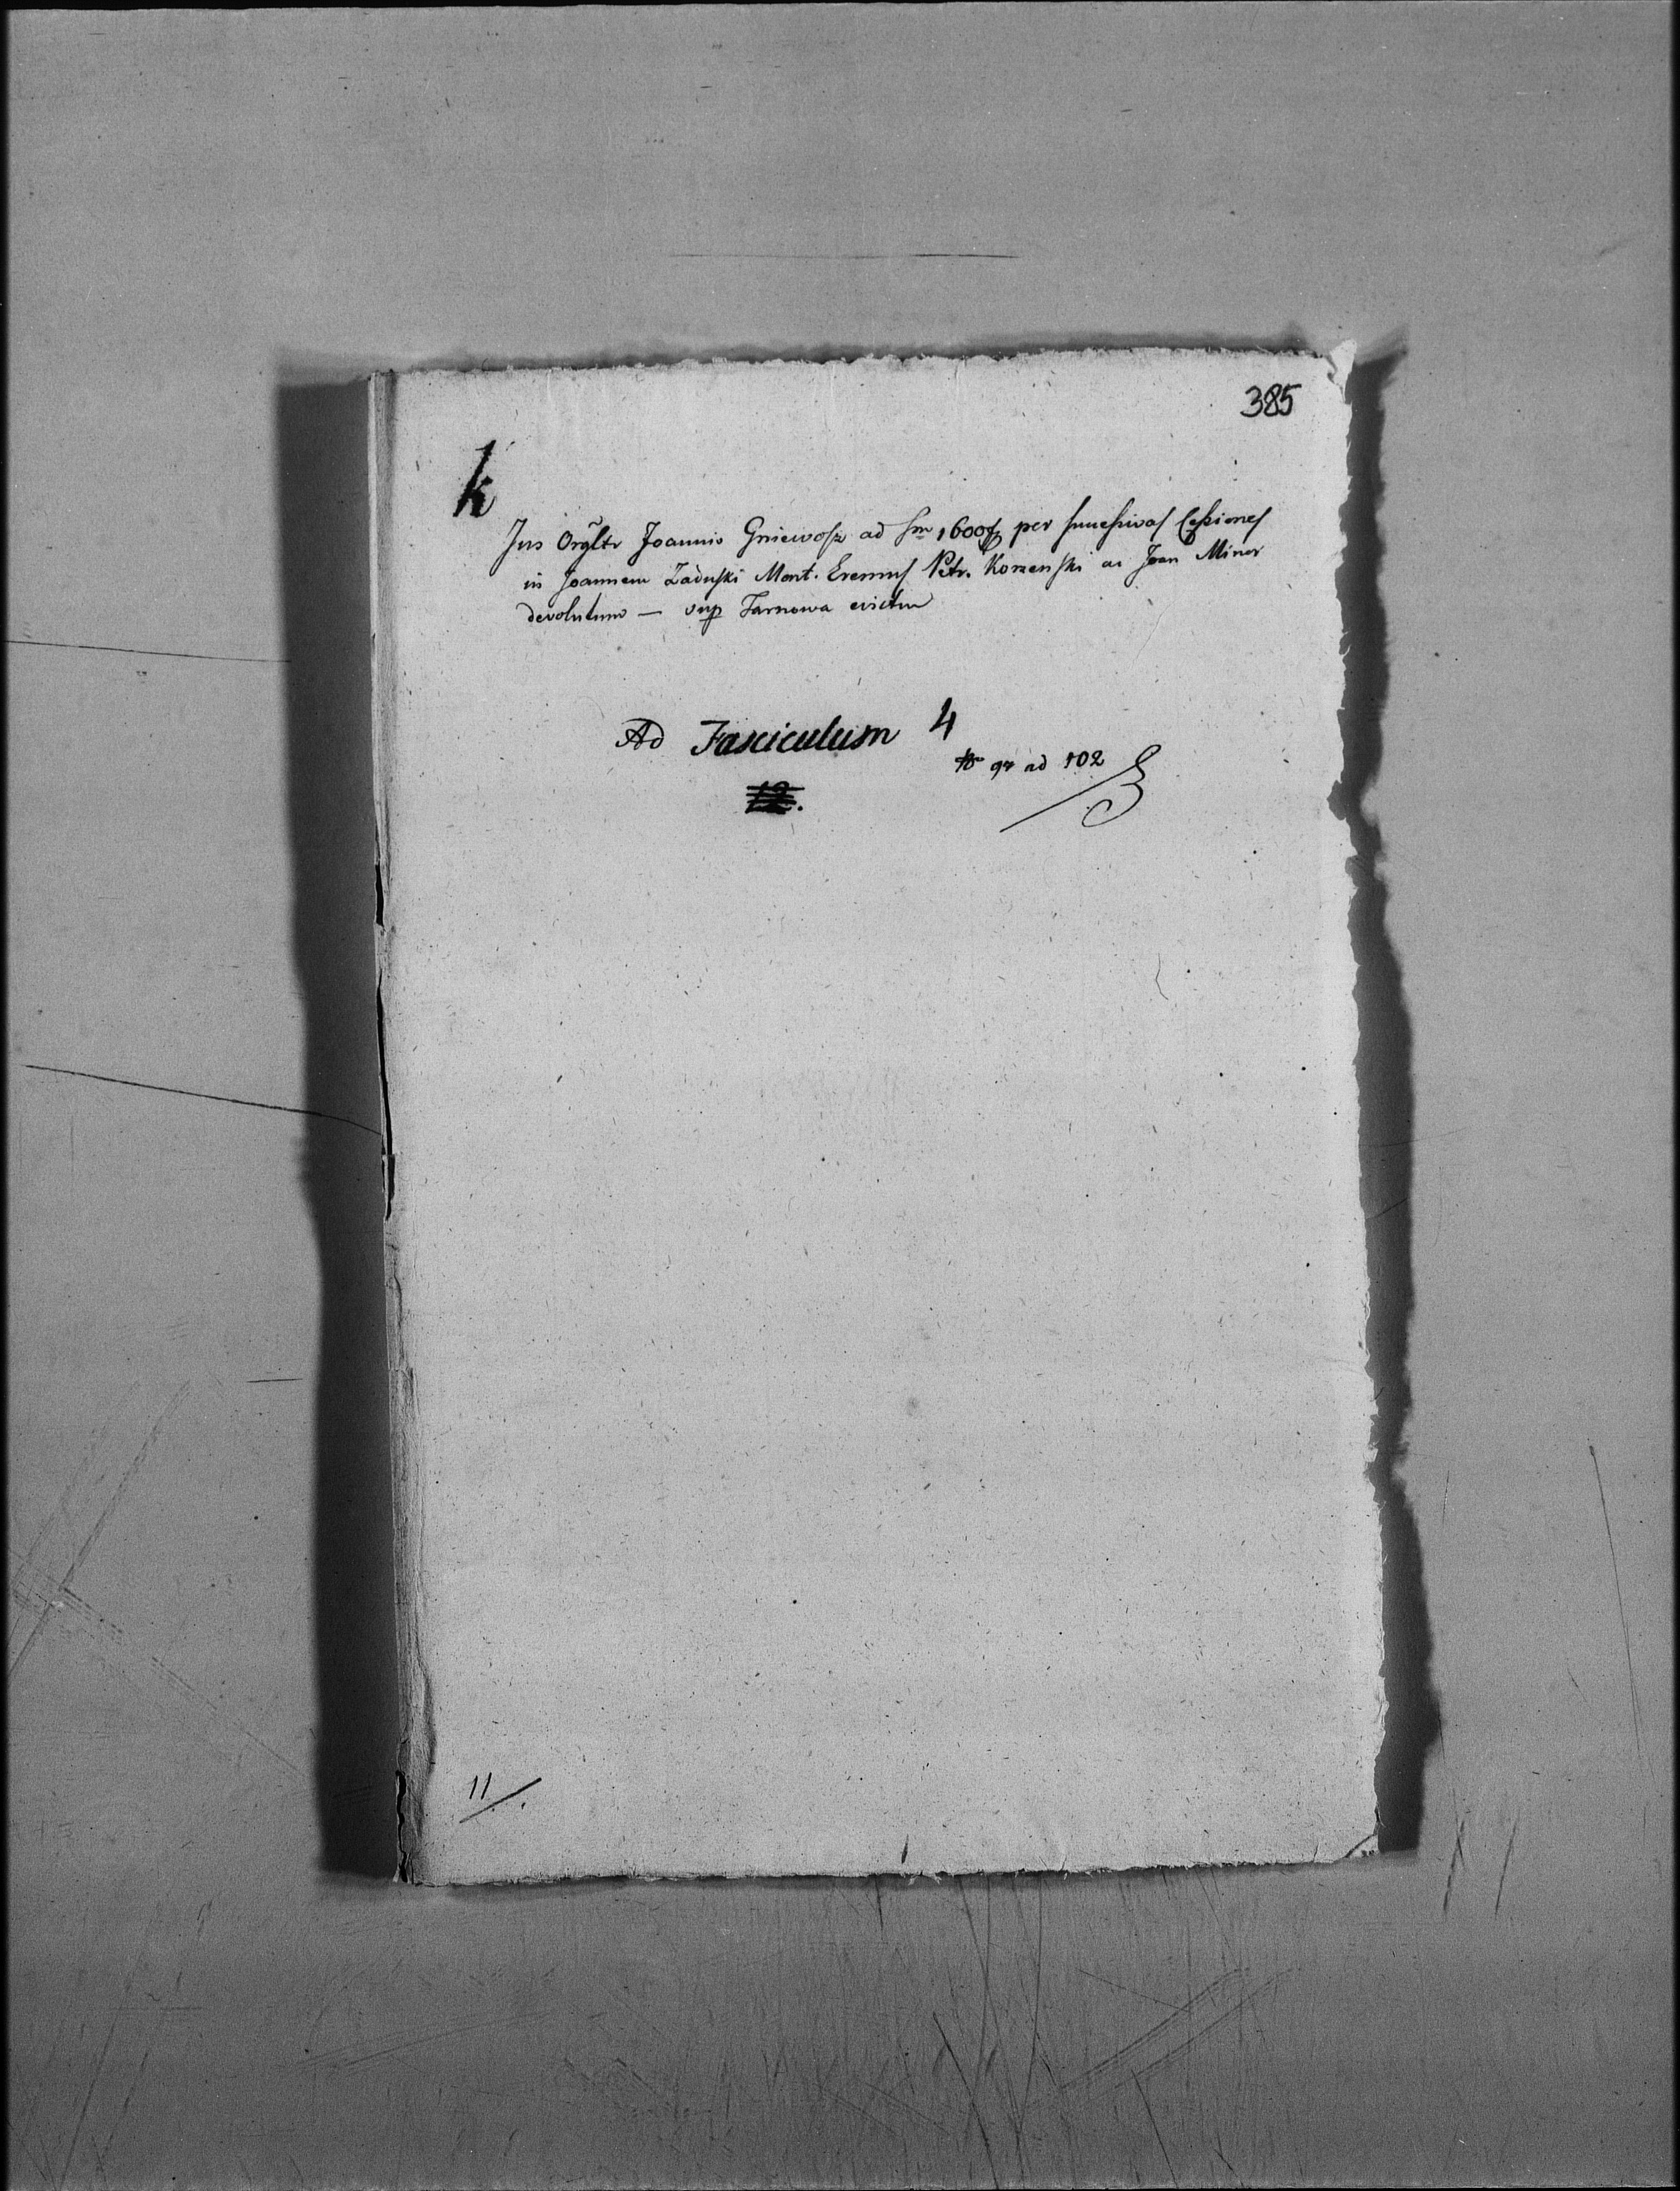 385
k
Jus Orgltr Joannis Gniewosz ad Sm 1600 f per successivas Cessiones
in Joannem Załuski Mont. Eremus Petr. Korzenski ac Joan Minor
devolutum — sup Tarnowa evictu
Ad Fasciculum 4
97 ad 102
12.
11